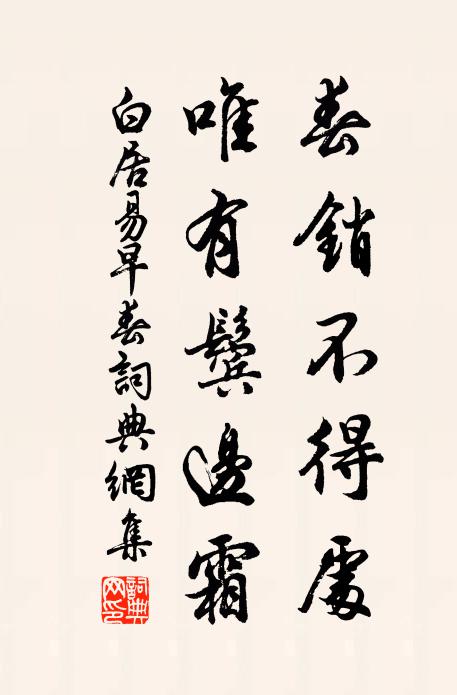 春銷不得處
唯有鬢邊霜
白居易早春詞典網集
詞典網印